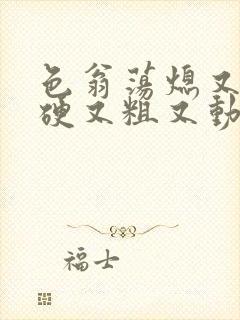 色翁荡熄又
硬又粗又動
福士